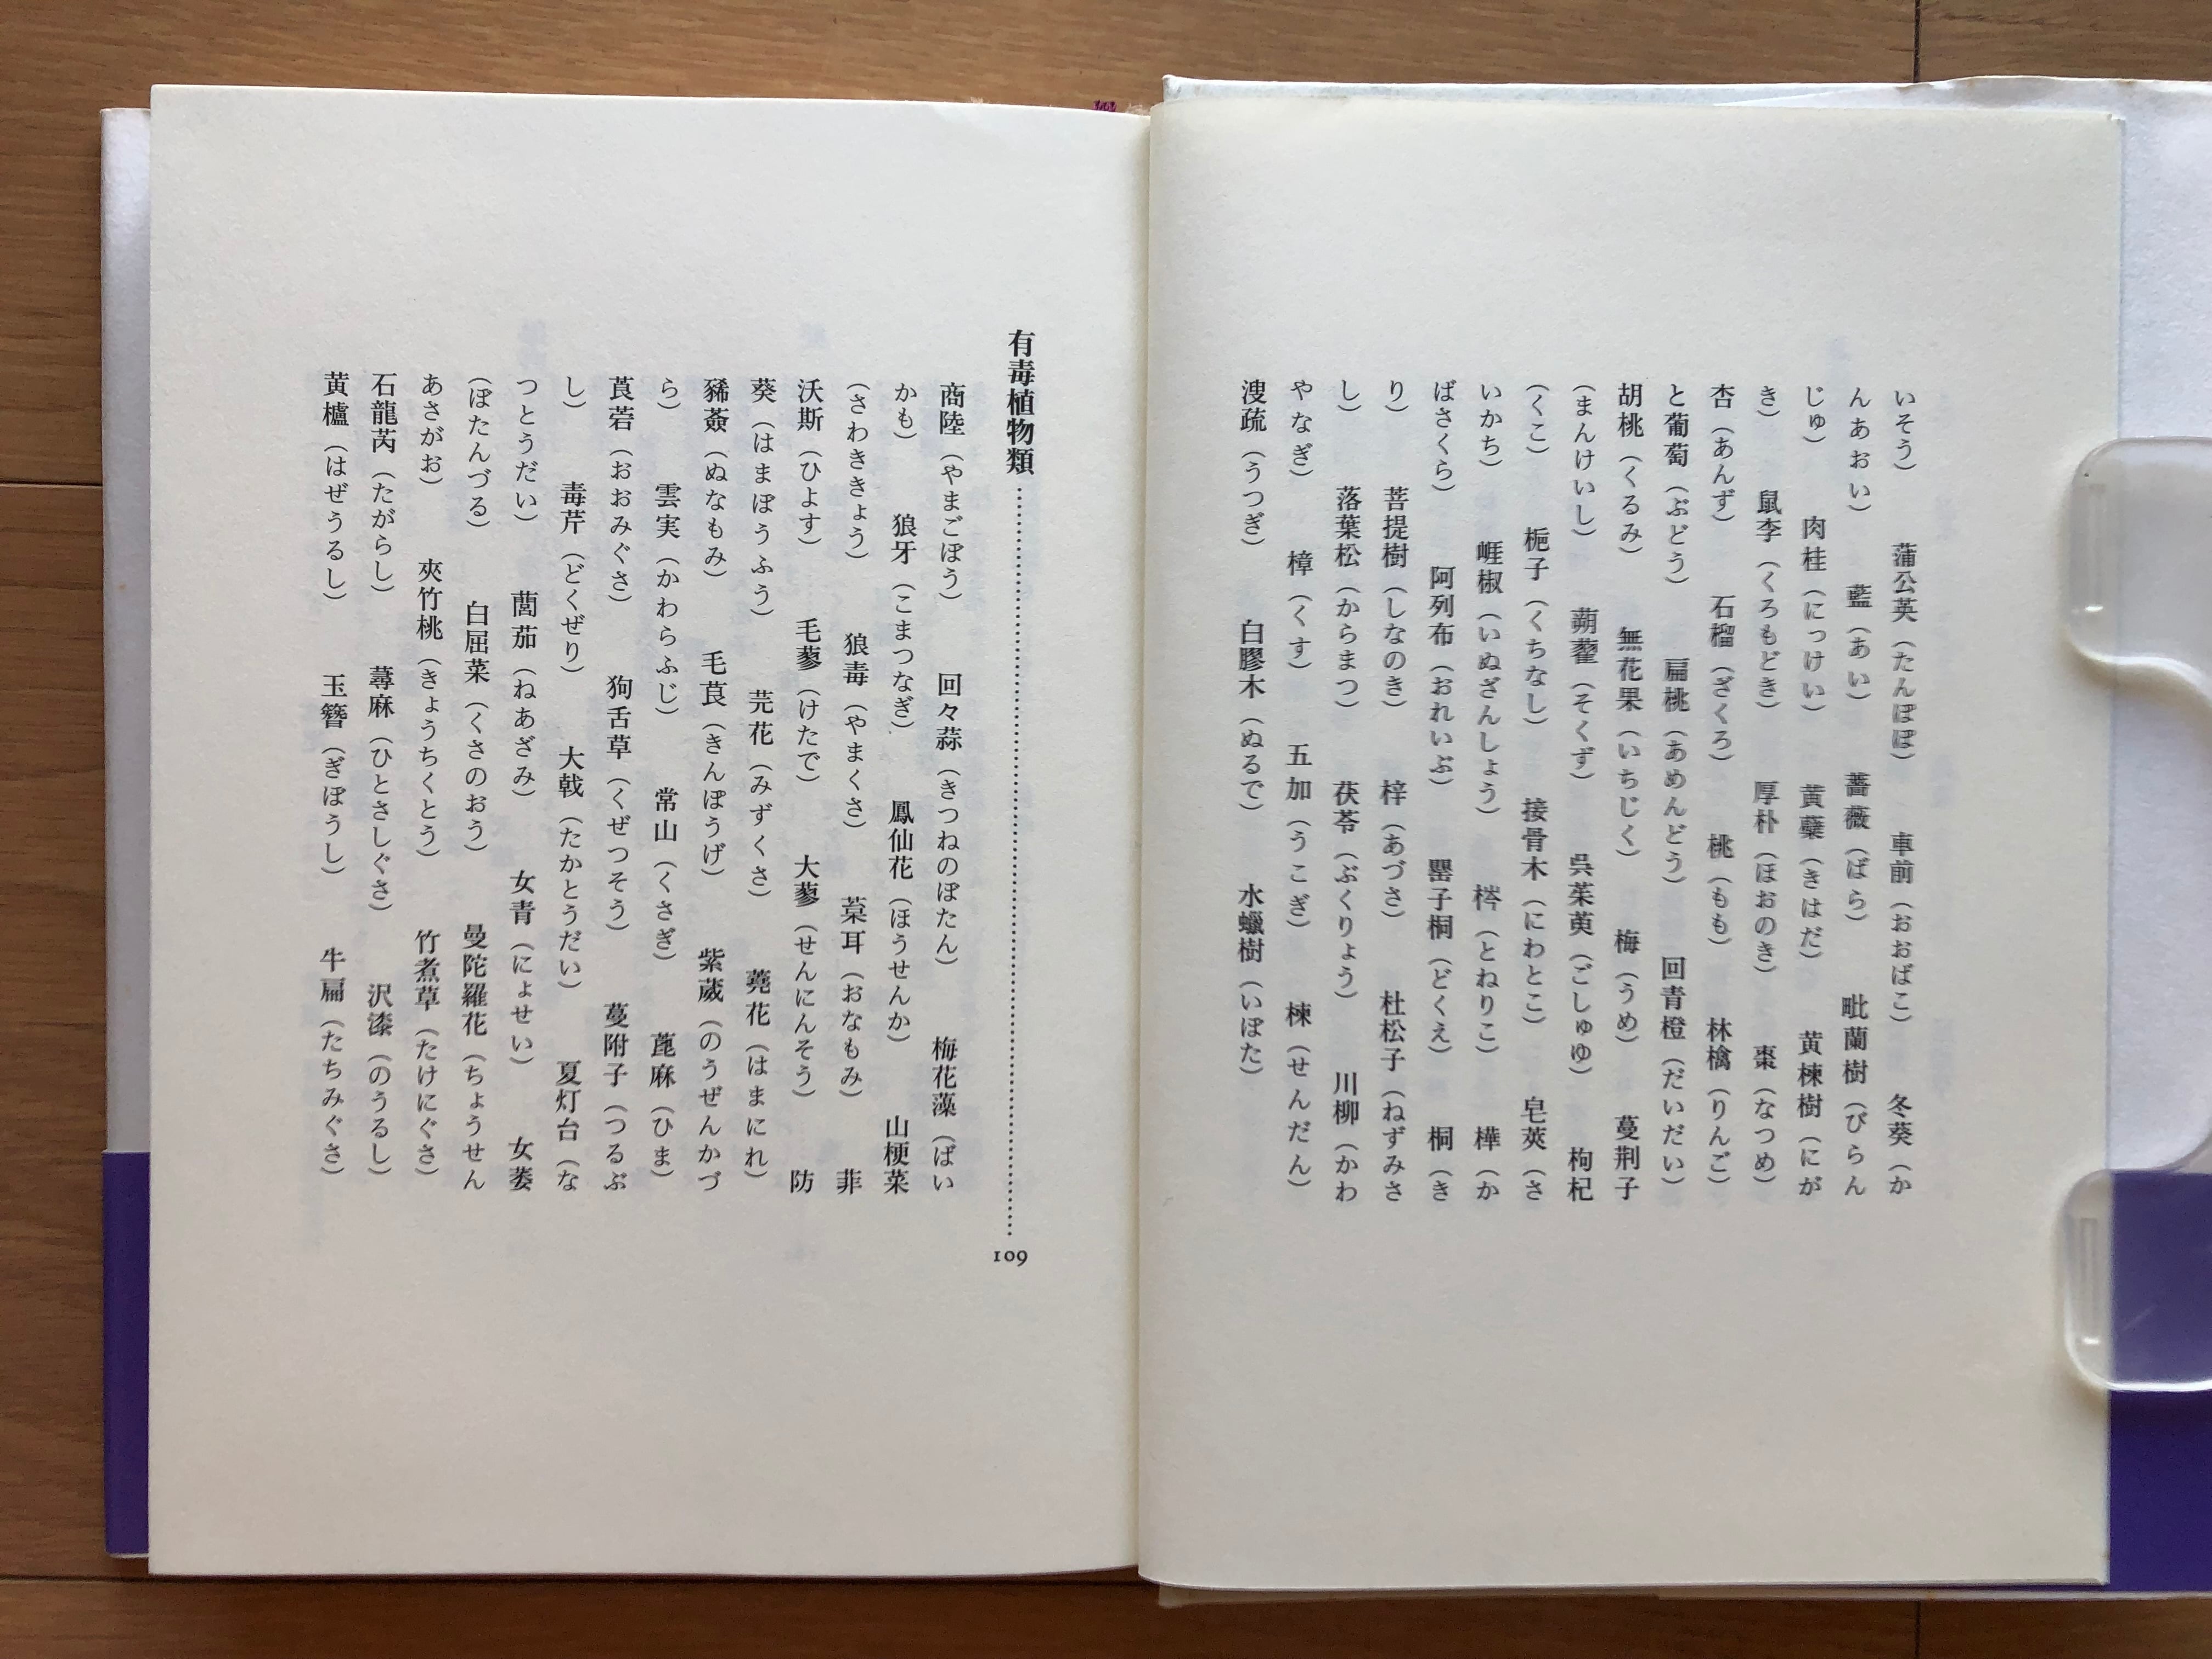 いそう)　蒲公英(たんぽぽ)　車前(おおばこ)　冬葵(か
んあおい)　藍(あい)　薔薇(ばら)　毗蘭樹(びらん
じゅ)　肉桂(にっけい)　黄蘗(きはだ)　黄楝樹(にが
き)　鼠李(くろもどき)　厚朴(ほおのき)　棗(なつめ)
杏(あんず)　石榴(ざくろ)　桃(もも)　林檎(りんご)
と葡萄(ぶどう)　扁桃(あめんどう)　回青橙(だいだい)
胡桃(くるみ)　無花果(いちじく)　梅(うめ)　蔓荆子
(まんけいし)　蒴藋(そくず)　呉茱萸(ごしゅゆ)　枸杞
(くこ)　梔子(くちなし)　接骨木(にわとこ)　皂莢(さ
いかち)　崕椒(いぬざんしょう)　梣(とねりこ)　樺(か
ばさくら)　阿列布(おれいぶ)　罌子桐(どくえ)　桐(き
り)　菩提樹(しなのき)　梓(あづさ)　杜松子(ねずみさ
し)　落葉松(からまつ)　茯苓(ぶくりょう)　川柳(かわ
やなぎ)　樟(くす)　五加(うこぎ)　楝(せんだん)
溲疏(うつぎ)　白膠木(ぬるで)　水蠟樹(いぼた)
有毒植物類……109
商陸(やまごぼう)　回々蒜(きつねのぼたん)　梅花藻(ばい
かも)　狼牙(こまつなぎ)　鳳仙花(ほうせんか)　山梗菜
(さわききょう)　狼毒(やまくさ)　葈耳(おなもみ)　菲
沃斯(ひよす)　毛蓼(けたで)　大蓼(せんにんそう)　防
葵(はまぼうふう)　芫花(みずくさ)　蕘花(はまにれ)
豨薟(ぬなもみ)　毛茛(きんぽうげ)　紫葳(のうぜんかづ
ら)　雲実(かわらふじ)　常山(くさぎ)　蓖麻(ひま)
莨菪(おおみぐさ)　狗舌草(くぜつそう)　蔓附子(つるぶ
し)　毒芹(どくぜり)　大戟(たかとうだい)　夏灯台(な
つとうだい)　䕡茹(ねあざみ)　女青(にょせい)　女萎
(ぼたんづる)　白屈菜(くさのおう)　曼陀羅花(ちょうせん
あさがお)　夾竹桃(きょうちくとう)　竹煮草(たけにぐさ)
石龍芮(たがらし)　蕁麻(ひとさしぐさ)　沢漆(のうるし)
黄櫨(はぜうるし)　玉簪(ぎぼうし)　牛扁(たちみぐさ)